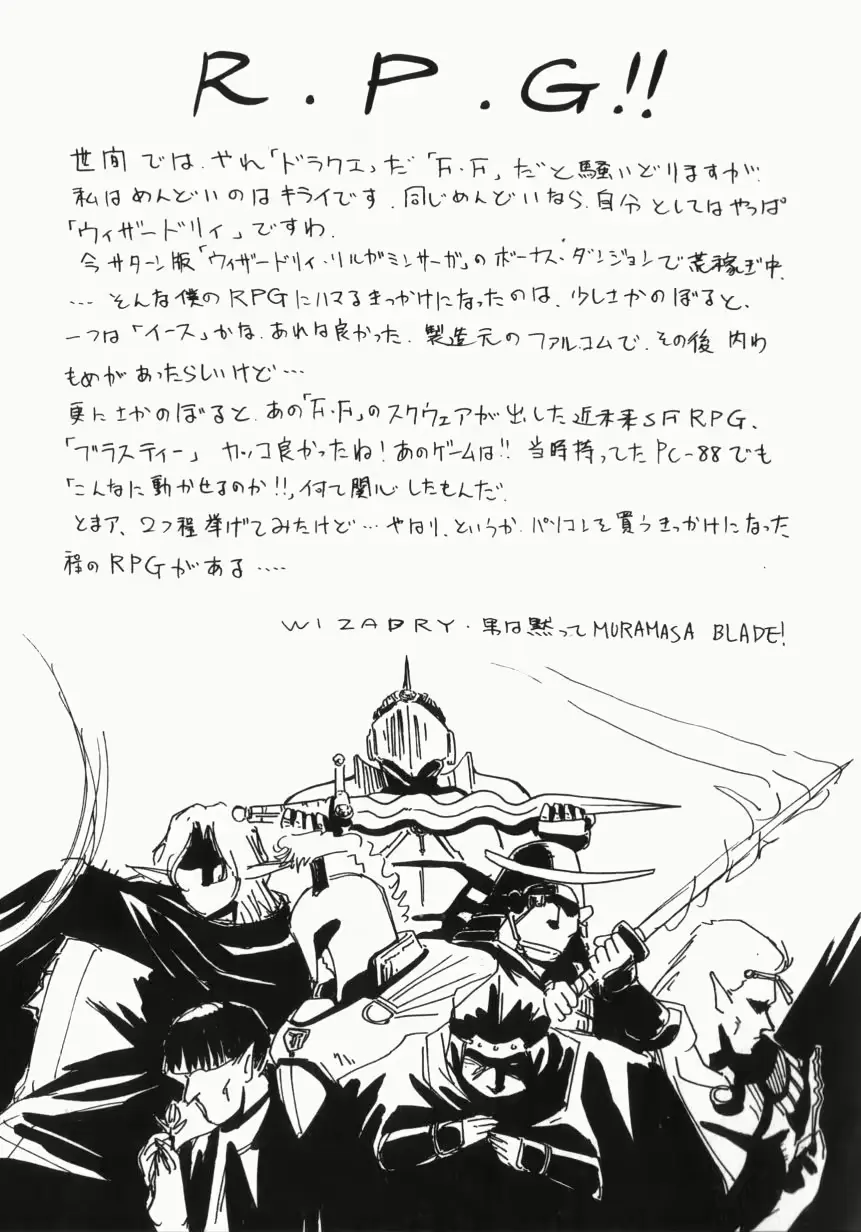 R.P.G!!
世間では、やれ「ドラクエ」だ「F・F」だと騒いどりますが、
私はめんどいのはキライです。同じめんどいなら、自分としてはやっぱ
「ウィザードリィ」ですわ。
今サターン版「ウィザードリィ・リルガミンサーガ」のボーナス・ダンジョンで荒稼ぎ中。
… そんな僕のRPGにハマるきっかけになったのは、少しさかのぼると、
一つは「イース」かな。あれは良かった。製造元のファルコムで、その後 内わ
もめがあったらしいけど…
更にさかのぼると、あの「F・F」のスクウェアが出した近未来SFRPG、
「ブラスティー」カッコ良かったね!あのゲームは!! 当時持ってたPC-88でも
「こんなに動かせるのか!!」何て関心したもんだ。
とまァ、2つ程挙げてみたけど… やはり、というか、パソコンを買うきっかけになった
程のRPGがある‥‥
WIZADRY・男は黙ってMURAMASA BLADE!